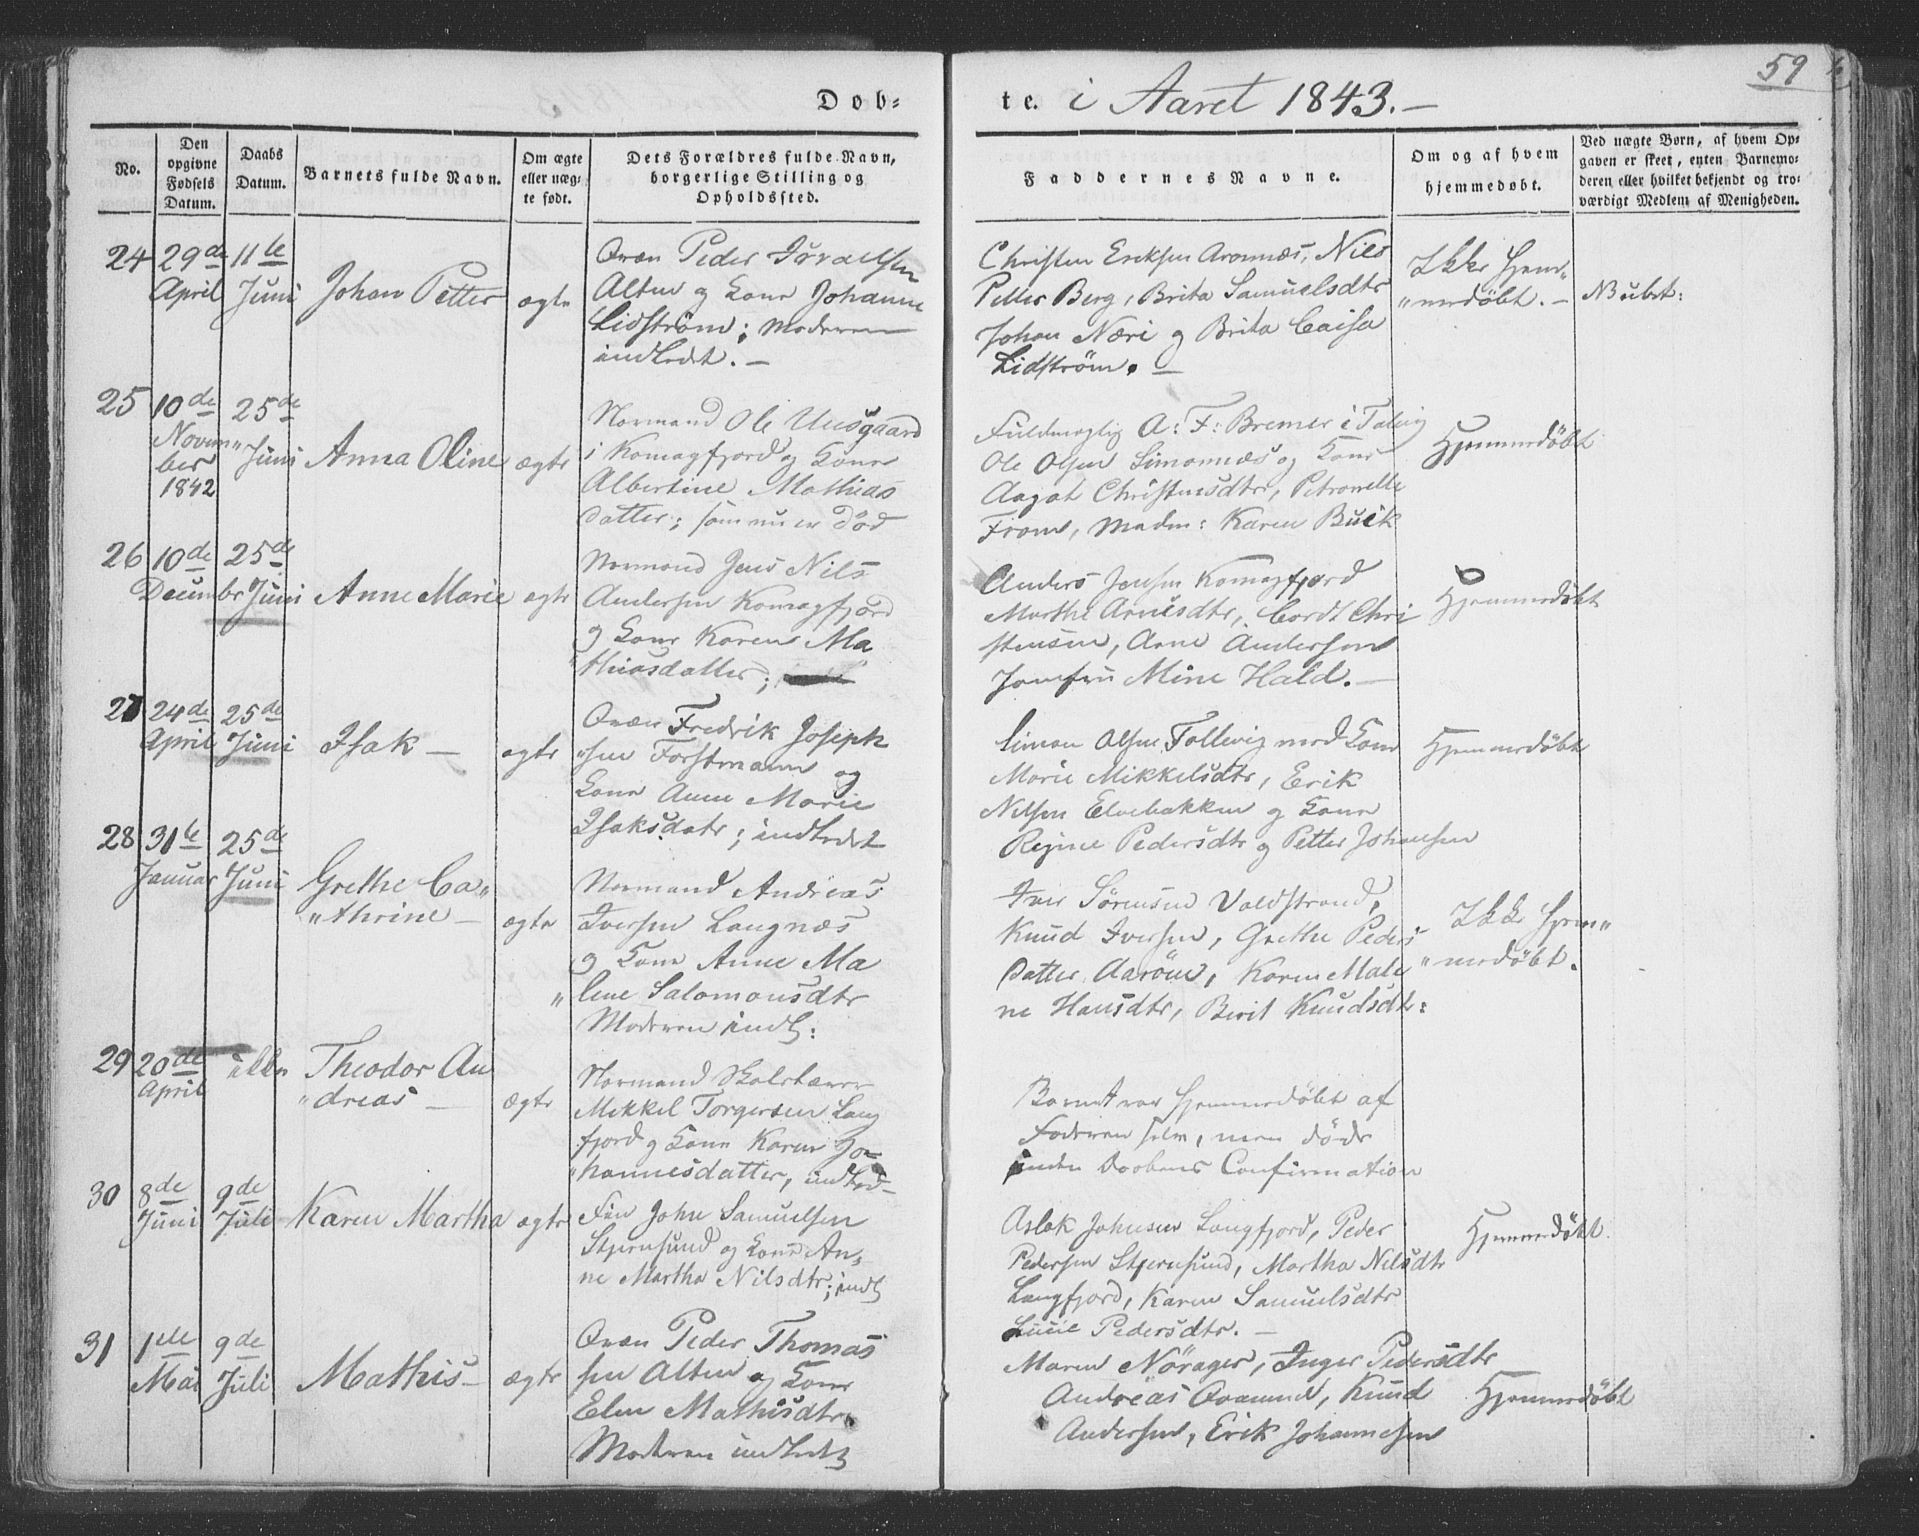 59
Døb=
te. i Aaret 1843.—
No.
Den opgivne Fødsels Datum.
Daabs Datum.
Barnets fulde Navn.
Om ægte eller uæg-
te født.
Dets Forældres fulde Navn,
borgerlige Stilling og
Opholdssted.
Faddernes Navne.
Om og af hvem
hjemmedøbt.
Ved uægte Børn, af hvem Op-
gaven er skeet, enten Barnemo-
deren eller hvilket bekjendt og tro-
værdigt Medlem af Menigheden.
24
29de
April
11te
Juni
Johan Petter
ægte
Qvæn Peder Israelsen
Alten og Kone Johanne
Lidström; Moderen
indledet.—
Christen Eriksen Aronnæs, Nils
Petter Berg, Brita Samuelsdtr
Johan Næri og Brita Caisa
Lidström.—
Ikke Hjem„
„medøbt.—
Nubet:
25
10de
Novem„
ber
1842
25de
Juni
Anna Oline
ægte
Normand Ole Uusgaard
i Komagfjord og Kone
Albertine Mathias
datter; som nu er Død
Fuldmægtig A: F: Bremer i Talvig
Ole Olsen Simonnæs og Kone
Aagot Christensdtr, Petronelle
From, Madm: Karen Buck
Hjemmedøbt
26
10de
Decembr
25de
Juni
Anne Marie
ægte
Normand Jens Nils
Andersen Komagfjord
og Kone Karen Ma
„thiasdatter;
Anders Jensen Komagfjord
Marthe Arnesdtr, Cordt Chri
stensen, Arne Andersen
Jomfru Mine Hald.—
Hjemmedøbt
27
24de
April
25de
Juni
Isak—
ægte
Qvæn Fredrik Joseph
„sen Forstmann og
Kone Anne Marie
Isaksdatr; indledet
Simon Olsen Tollevig med Kone
Marie Mikkelsdtr, Erik
Nilsen Elvebakken og Kone
Regine Pedersdtr og Petter Johansen
Hjemmedøbt
28
31te
Januar
25de
Juni
Grethe Ca„
„thrine—
ægte
Normand Andreas
Iversen Langnæs
og Kone Anne Ma
„lene Salomonsdtr
Moderen indl:
Iver Sörensen Valdstrand,
Knud Iversen, Grethe Peders
datter Aaröen, Karen Male
ne Hansdtr, Berit Knudsdtr:
Ikke Hjem„
„medøbt.
29
20de
April
Theodor An
„dreas—
ægte
Normand Skolelærer
Mikkel Torgersen Lang
fjord og Kone Karen Jo-
„hannesdatter, indled—
Barnet var hjemmedøbt af
Faderen selv, men døde
inden Daabens Confirmation
30
8de
Juni
9de
Juli
Karen Martha
ægte
Fin John Samuelsen
Stjernsund og Kone An„
ne Martha Nilsdtr; indl
Aslak Johnsen Langfjord, Peder
Pedersen Stjernsund, Martha Nilsdtr
Langfjord, Karen Samuelsdtr
Lucie Pedersdtr.—
Hjemmedøbt.
31
1ste
Mai
9de
Juli
Mathis—
ægte
Qvæn Peder Thomas
sen Alten og Kone
Elen Mathisdtr
Moderen indledet
Maren Nörager, Inger Pedersdtr
Andreas Qvamend, Knud
Andersen, Erik Johannesen
Hjemmedøbt